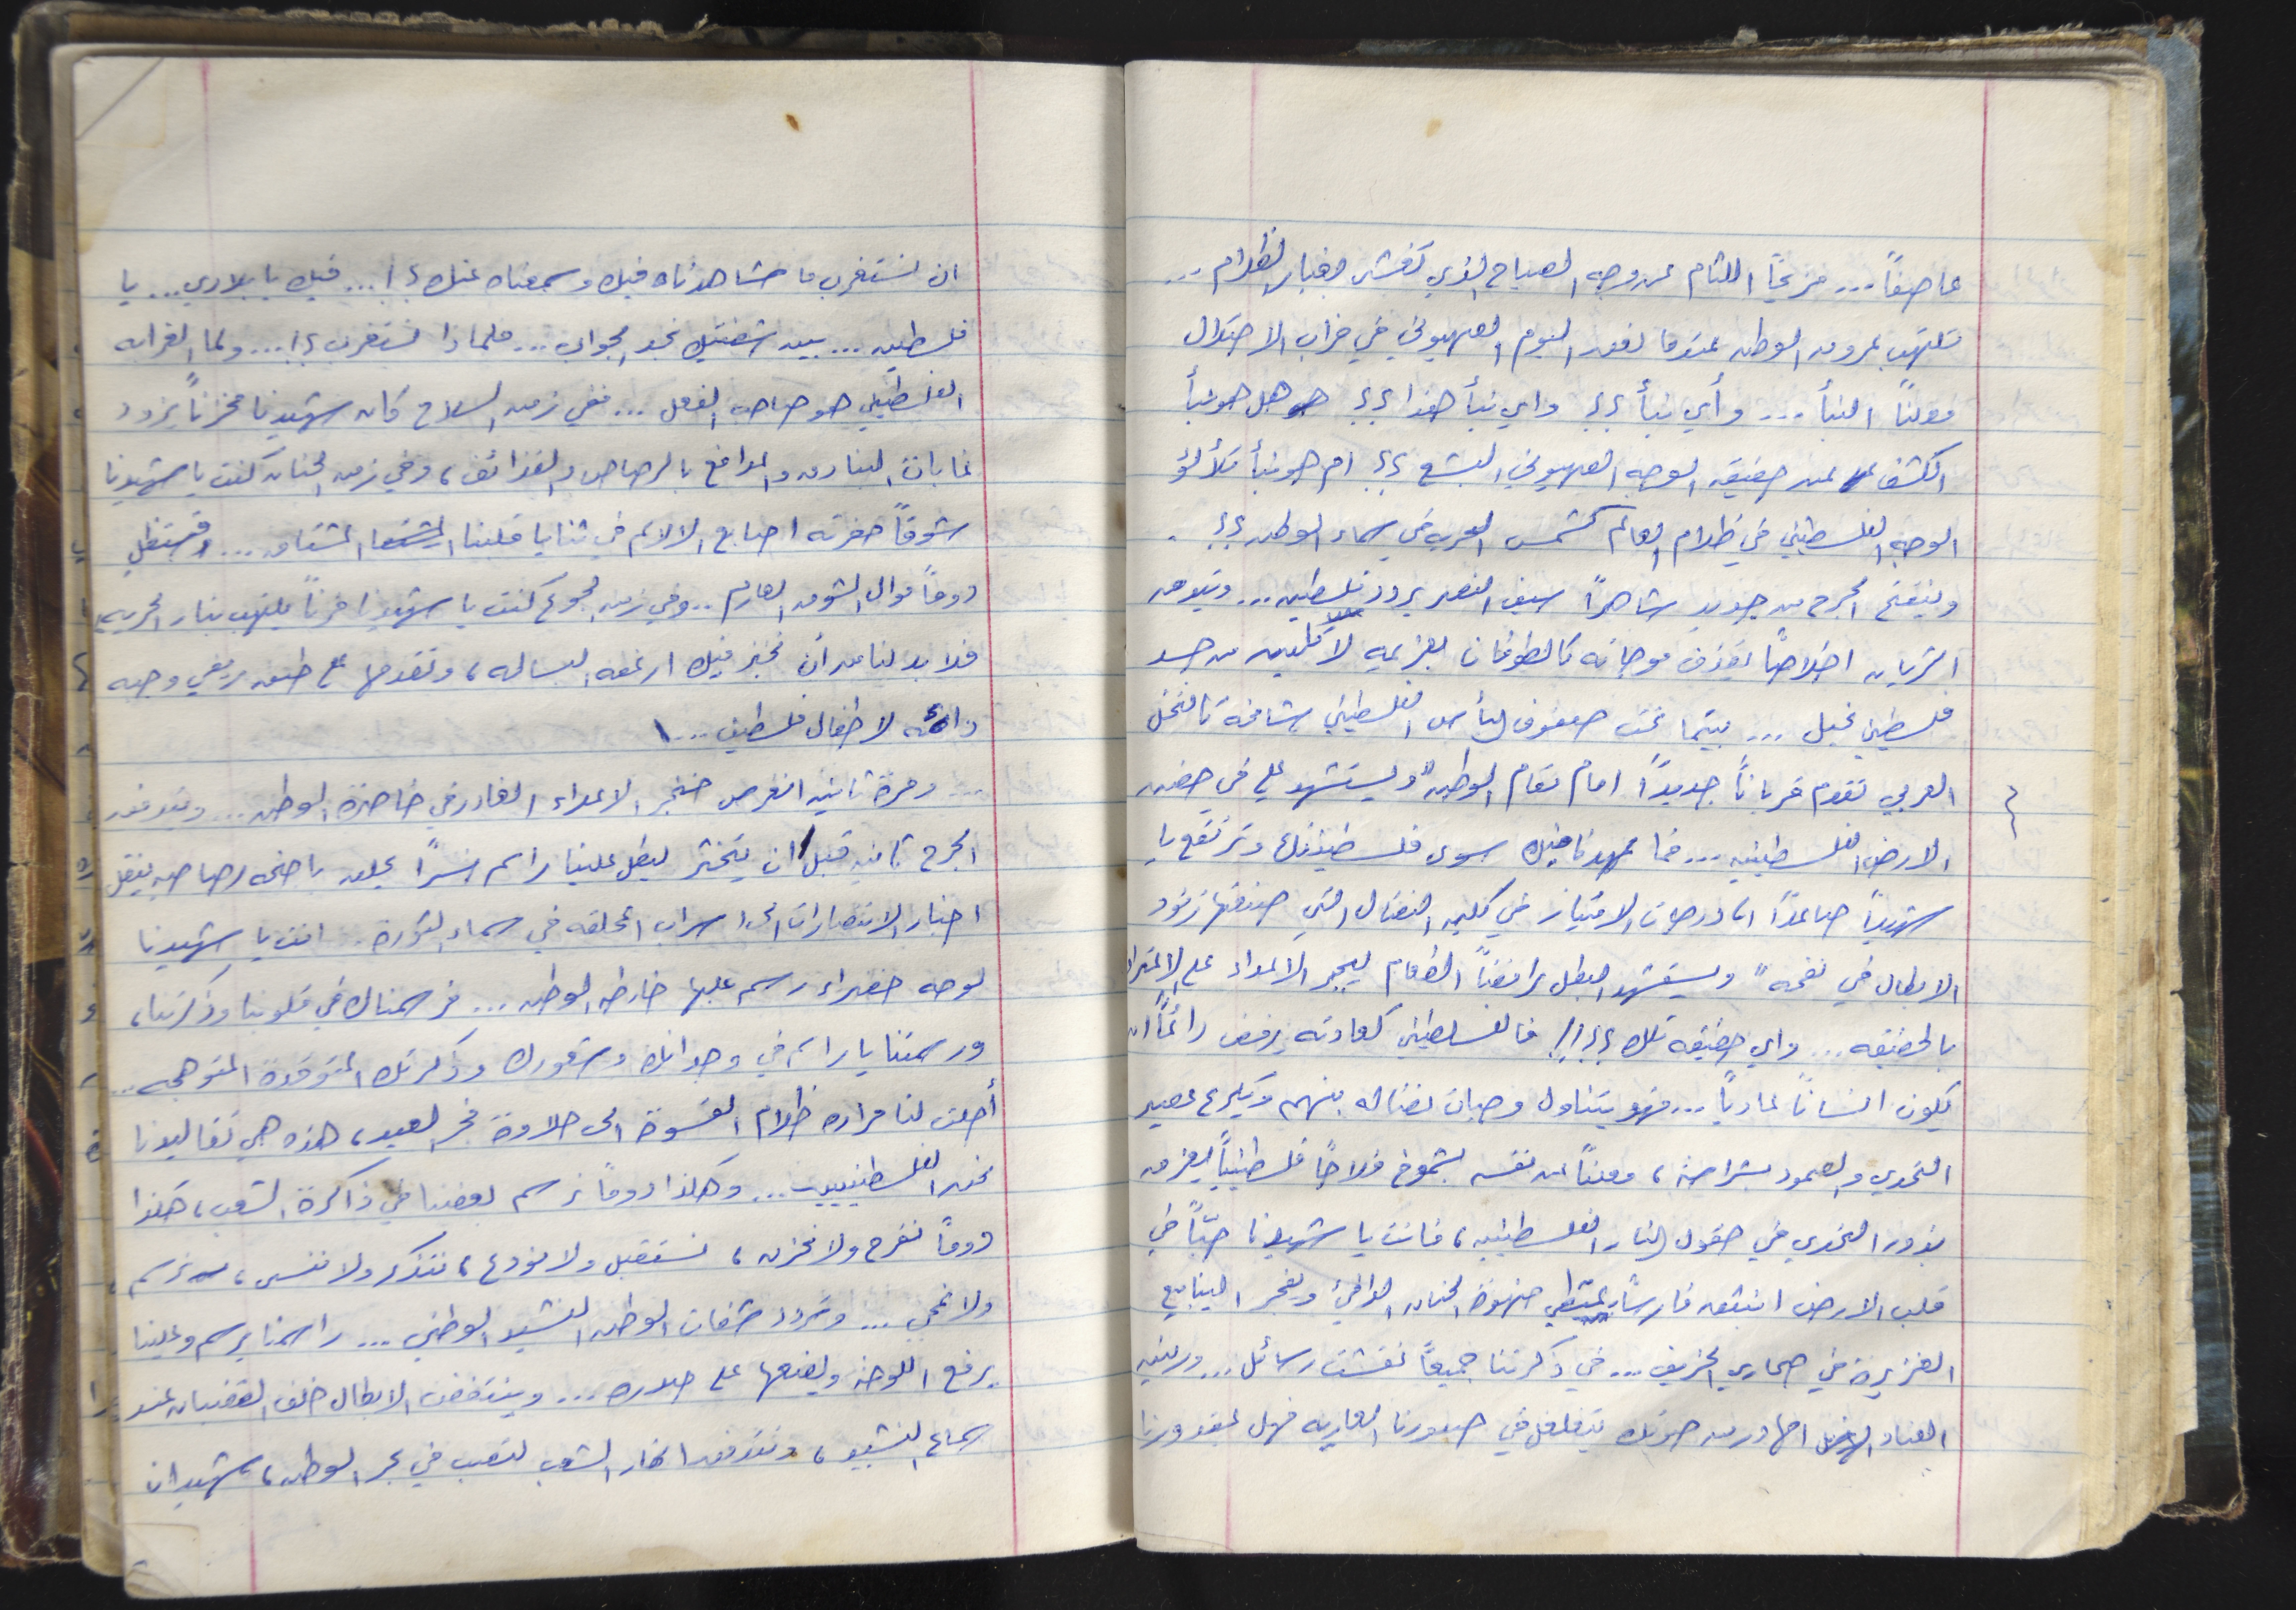 عاصفاً... مزيحاً اللثام عن وجه الصباح الذي تغشى بغبار الظلام...
تلتهب عروق الوطن عندما نعق البوم الصهيوني في خراب الاحتلال
معلناً النبأ... وأي نبأ؟؟ واي نبأ هذا؟؟ هل هو نبأ
الكشف عن حقيقة الوجه الصهيوني البشع؟؟ ام هو نبأ تلألؤ
الوجه الفلسطيني في ظلام العالم كشمس العرب في سماء الوطن؟؟.
وينفتح الجرح من جديد شاهراً سيف النصر يردد فلسطين... ويتدفق
الشريان اخلاصاً يقذف موجاته كالطوفان بعزيمه لا تلين من جسد
فلسطيني نحيل... بينما نحت صفوف البأس الفلسطيني شامخة كالنخل
العربي تقدم قرباناً جديداً امام مقام الوطن "ويستشهد علي في حضن
الارض الفلسطينيه... فما عهدنا فيك سوى فلسطينيتك وترتفع يا
شهيداً صاعداً اعلى درجات الامتياز في كليه النضال التي صنعتها زنود
الابطال في نفحه" ويستشهد البطل رافضاً الطعام ليجبر الاعداء على الاعتراف
بالحقيقه... واي حقيقه تلك؟؟!! فالفلسطيني كعادته يرفض دائماً ان
يكون انساناً عادياً... فهو يتناول وجبات نضاله بنهم ويكرع عصير
التحدي والصمود بشراسة، معلناً عن نفسه بشموخ فلاحاً فلسطينياً يغرق
بذور التحدي في حقول النار الفلسطينيه، فانت يا شهيدنا حبّاً في
قلب الارض انبثق فارساً يمتطي صهوة الحنان الدافئ ويفجر الينابيع
الغزيرة في صحاري الخريف... في ذكرتنا جميعاً نقشت رسائل... ورنين
العناد الهادر من صوتك يتغلغل في صدورنا العاريه فهل بمقدورنا
ان نستغرب ما شاهدناه فيك وسمعناه عنك؟!... فيك يا بلادي... يا
فلسطين... بين شفتيك نجد الجواب... فلماذا نستغرب؟!... ولما الغرابه
الفلسطيني هو صاحب الفعل... ففي زمن السلاح كان شهيدنا مخزناً يزود
غابات البنادق والمدافع بالرصاص والقذائف، وفي زمن الحنان كنت يا شهيدنا
شوقاً حفرته اصابع الالام في ثنايا قلبنا المشتاق... وستظل
دوماً موال الشوق العارم.. وفي زمن الجوع كنت يا شهيدنا فرناً يلتهب بنار الحريه
فلا بد لنا من ان نخبز فيك ارغفه البساله، ونقدمها على طبق ريفي وجبه
دائمه لاطفال فلسطين...!
... ومرة ثانيه انغرس خنجر الاعداء الغادر في خاصرة الوطن... ويتدفق
الجرح ثانيه قبل ان يتخثر ليطل علينا راسم نسراً يحلق باجنحه رصاصيه ينقل
اخبار الانتصارات الى اسراب المحلقه في سماء الثورة.. انت يا شهيدنا
لوحه خضراء رسم عليها خارطه الوطن... فرسمناك في قلوبنا وذكرتنا،
ورسمتنا يا راسم في وجدانك وشعورك وذكرتك المتوقدة المتوهجه..
أحلت لنا مراره ظلام القسوة الى حلاوة فجر العيد، هذه هي تقاليدنا
نحن الفلسطينيين... وهكذا دوماً نرسم بعضنا في ذاكرة الشعب، هكذا
دوماً نفرح ولا نحزن، نستقبل ولا نودع، نتذكر ولا ننسى، نرسم
ولا نمحي... وتردد شفات الوطن النشيد الوطني... راسمنا يرسم وعلينا
يرفع اللوحة ويضعها على صدره... وينتفض الابطال خلف القضبان عند
سماع النشيد، وتتدفق انهار الشعب لتصب في بحر الوطن، شهيدان